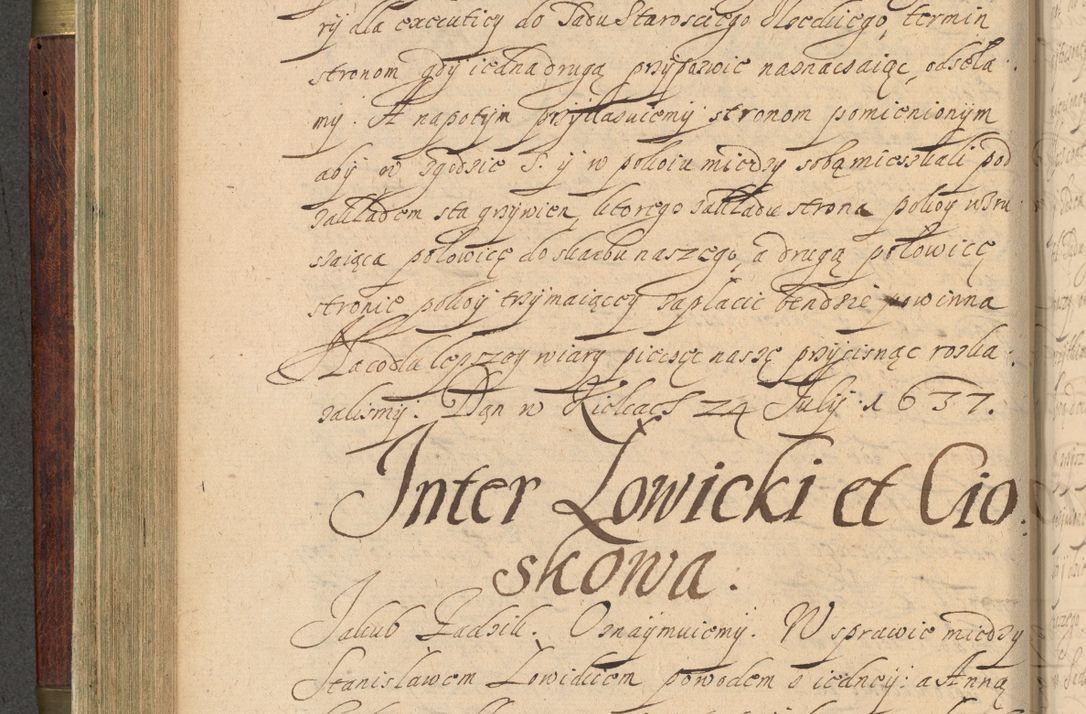 ry dla executiey do Sądu Starosciego Ilzeckiego, termin
stronom gdy iedna drugą przypozwie naznaczaiąc, odseła
my. A napotym przykazuiemy stronom pomienionym
aby w zgodzie S. y w pokoiu miedzy sobą mieszkali pod
zakładem sta grzywien, ktorego zakładu strona pokoy wzru
szaiąca połowicę do skarbu naszego, a drugą połowicę
stronie pokoy trzymaiącey zapłacic bendzie powinna
Na co dla lepszey wiary pieczęc naszę przycisnąc roska
zalismy. Dan w Kielcach 24 July 1637.
Inter Łowicki et Cio
skowa.
Jakub Zadzik. Oznaymuiemy. W sprawie miedzy
Stanisławem Łowickiem powodem z iedney: a Anną